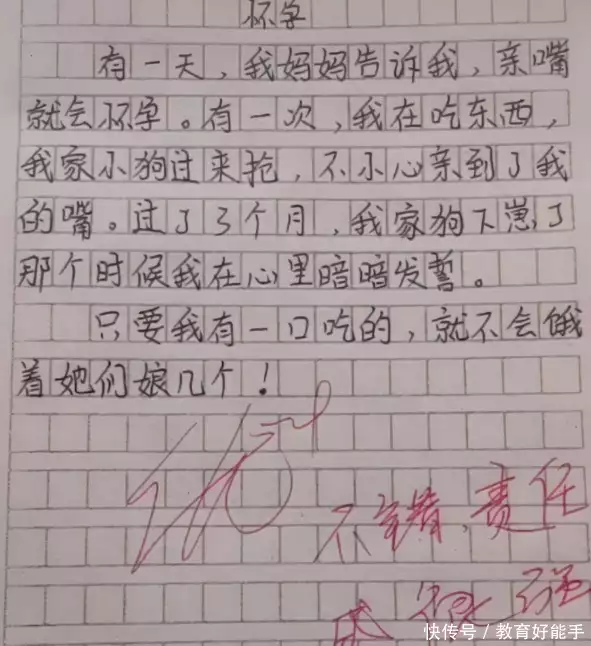 怀孕
有一天，我妈妈告诉我，亲嘴
就会怀孕。有一次，我在吃东西，
我家小狗过来抢，不小心亲到了我
的嘴。过了3个月，我家狗下崽了
那个时候我在心里暗暗发誓。
只要我有一口吃的，就不会饿
着她们娘几个！
不错，责任
强
快传号 / 教育好能手